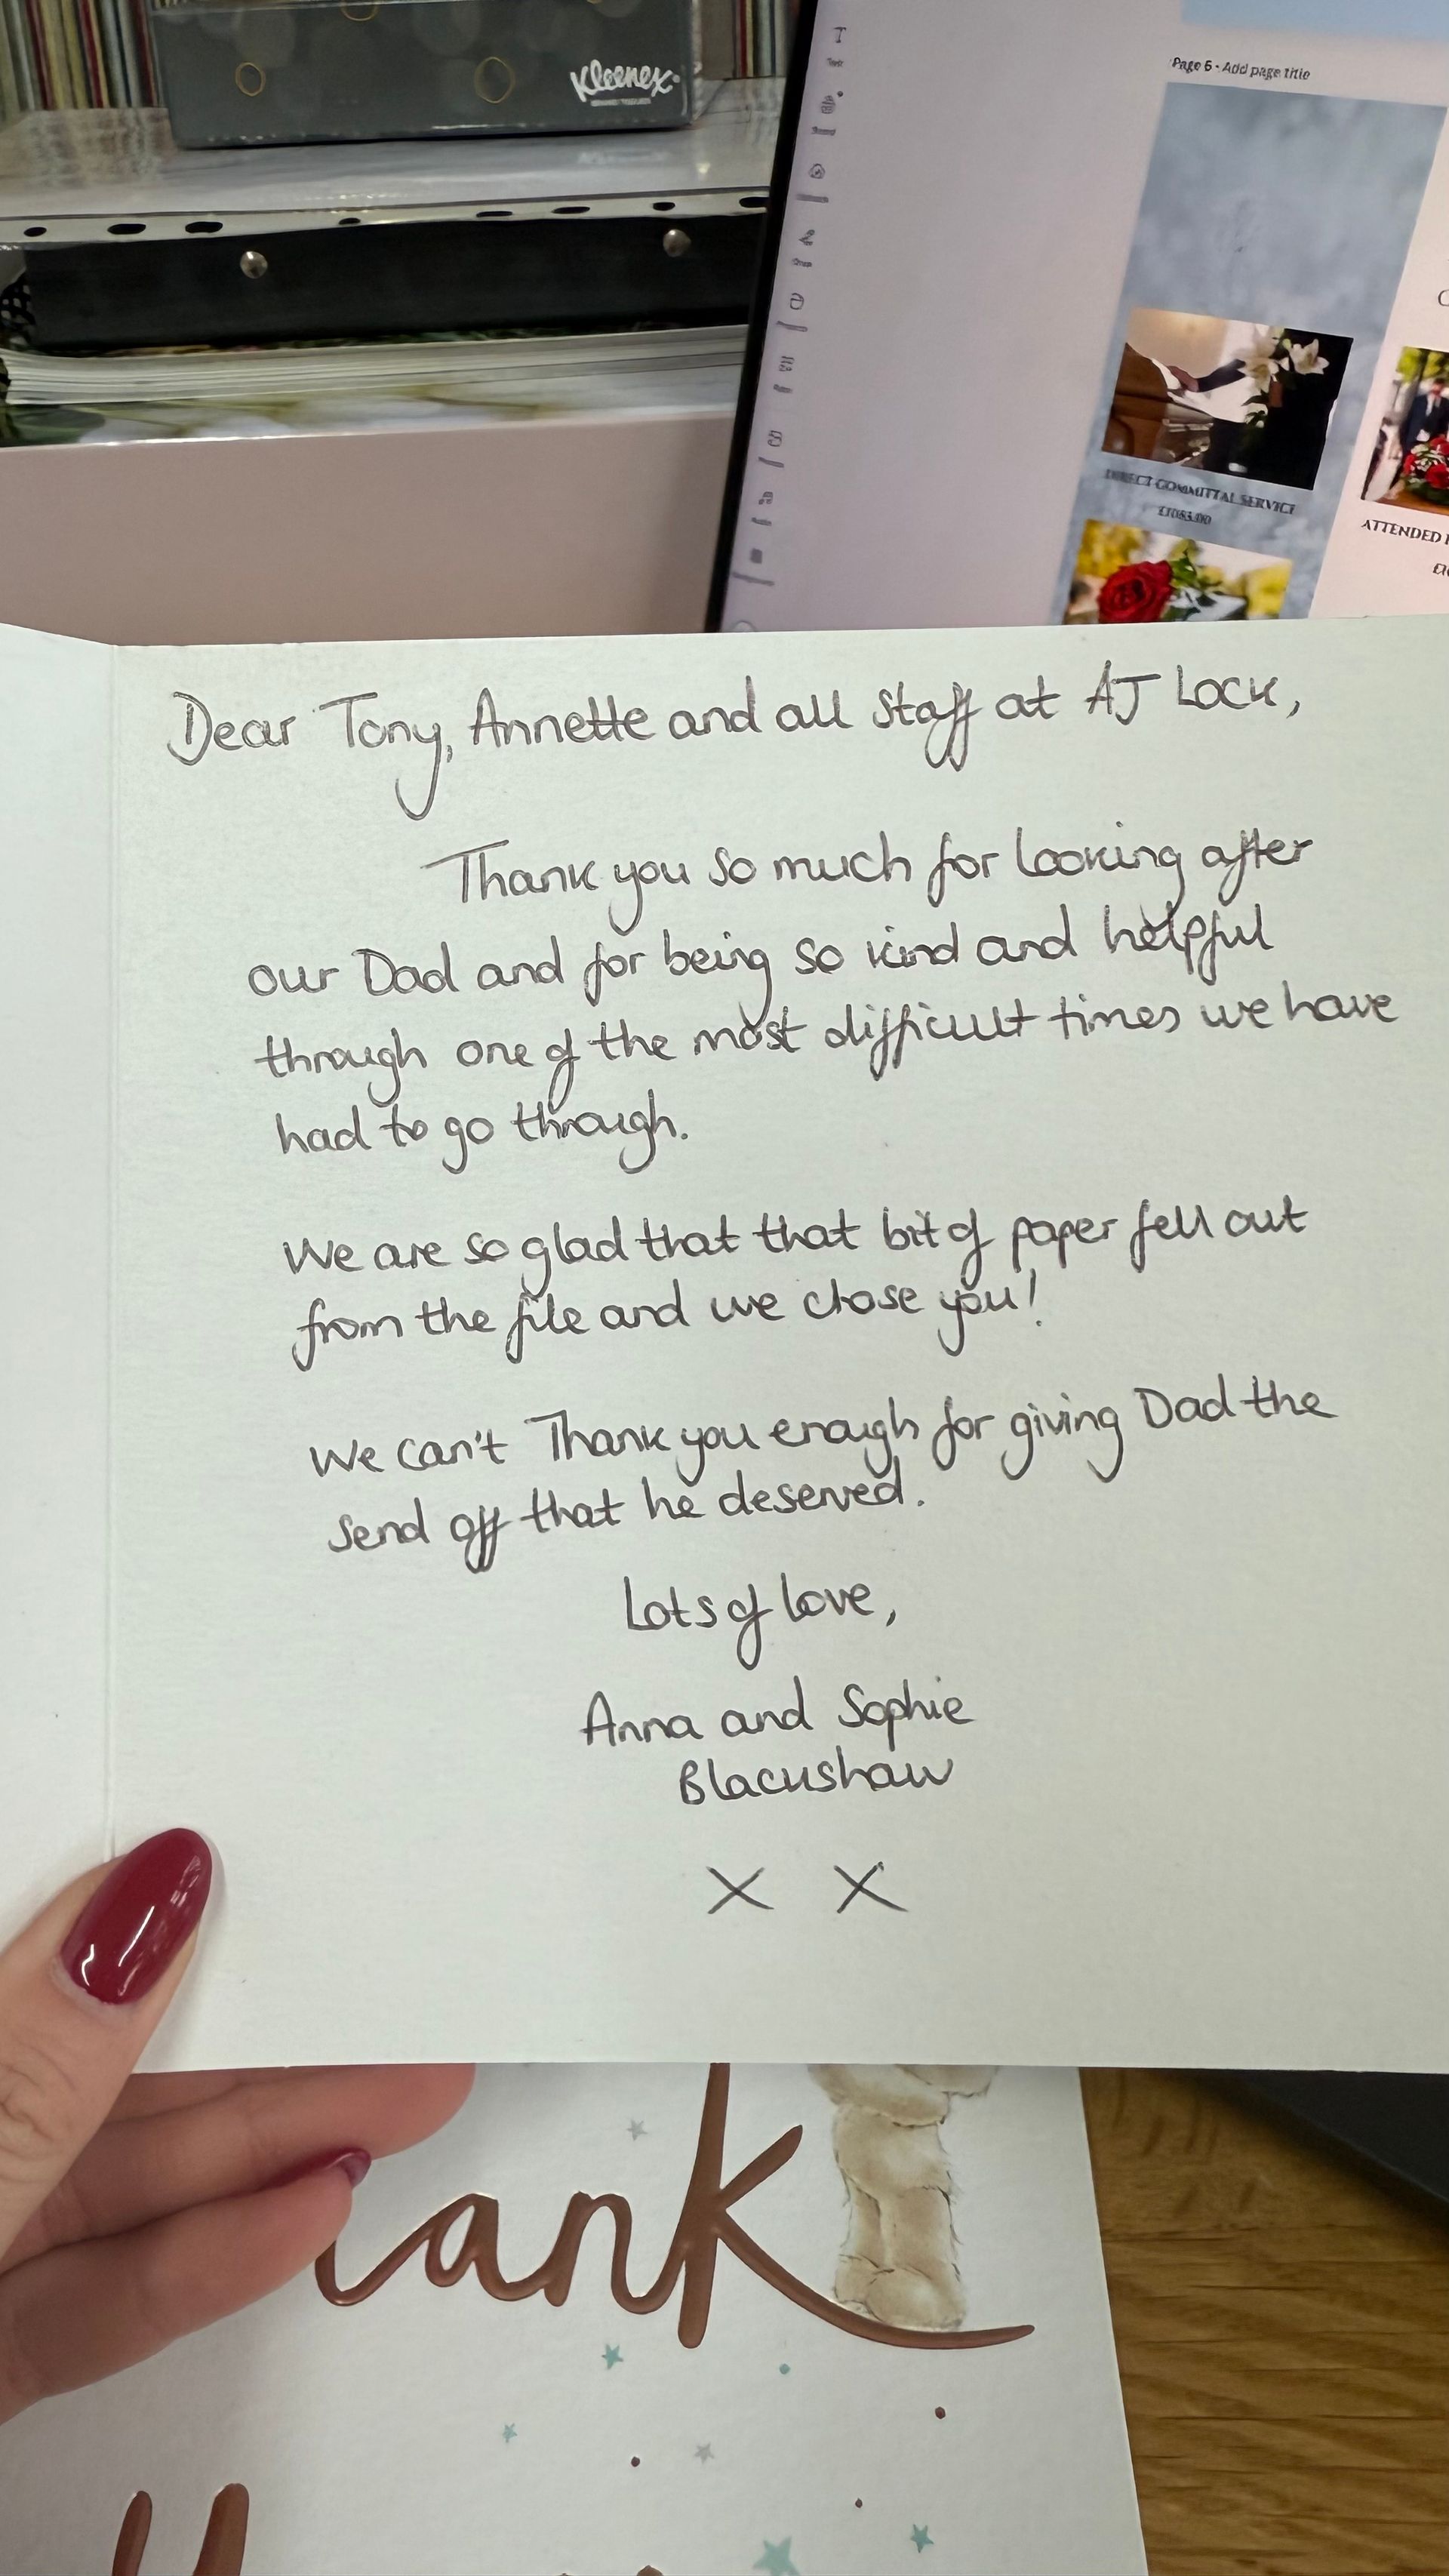 Kleenex
Page 6 - Add page title
DIRECT COMMITTAL SERVICE
£1083.00
ATTENDED
Dear Tony, Annette and all staff at AJ Lock,
Thank you so much for looking after
our Dad and for being so kind and helpful
through one of the most difficult times we have
had to go through.
We are so glad that that bit of paper fell out
from the file and we chose you!
We can't Thank you enough for giving Dad the
send off that he deserved.
Lots of love,
Anna and Sophie
Blackshaw
X X
ank